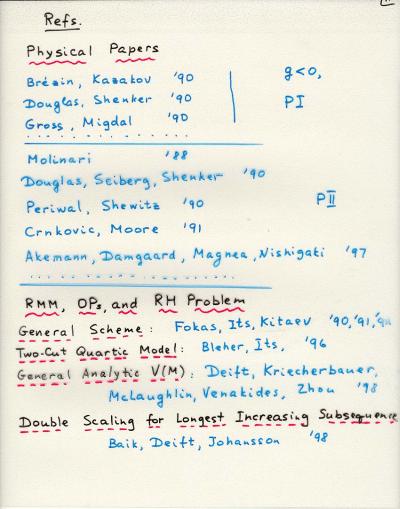 Refs.
Physical Papers
Brézin, Kazakov '90
g<0,
Douglas, Shenker '90
PI
Gross, Migdal '90
Molinari '88
Douglas, Seiberg, Shenker '90
Periwal, Shewitz '90
PII
Crnkovic, Moore '91
Akemann, Damgaard, Magnea, Nishigaki '97
RMM, OPs, and RH Problem
General Scheme: Fokas, Its, Kitaev '90, '91,
Two-Cut Quartic Model: Bleher, Its, '96
General Analytic V(M): Deift, Kriecherbauer,
McLaughlin, Venakides, Zhou '98
Double Scaling for Longest Increasing Subsequence
Baik, Deift, Johansson '98